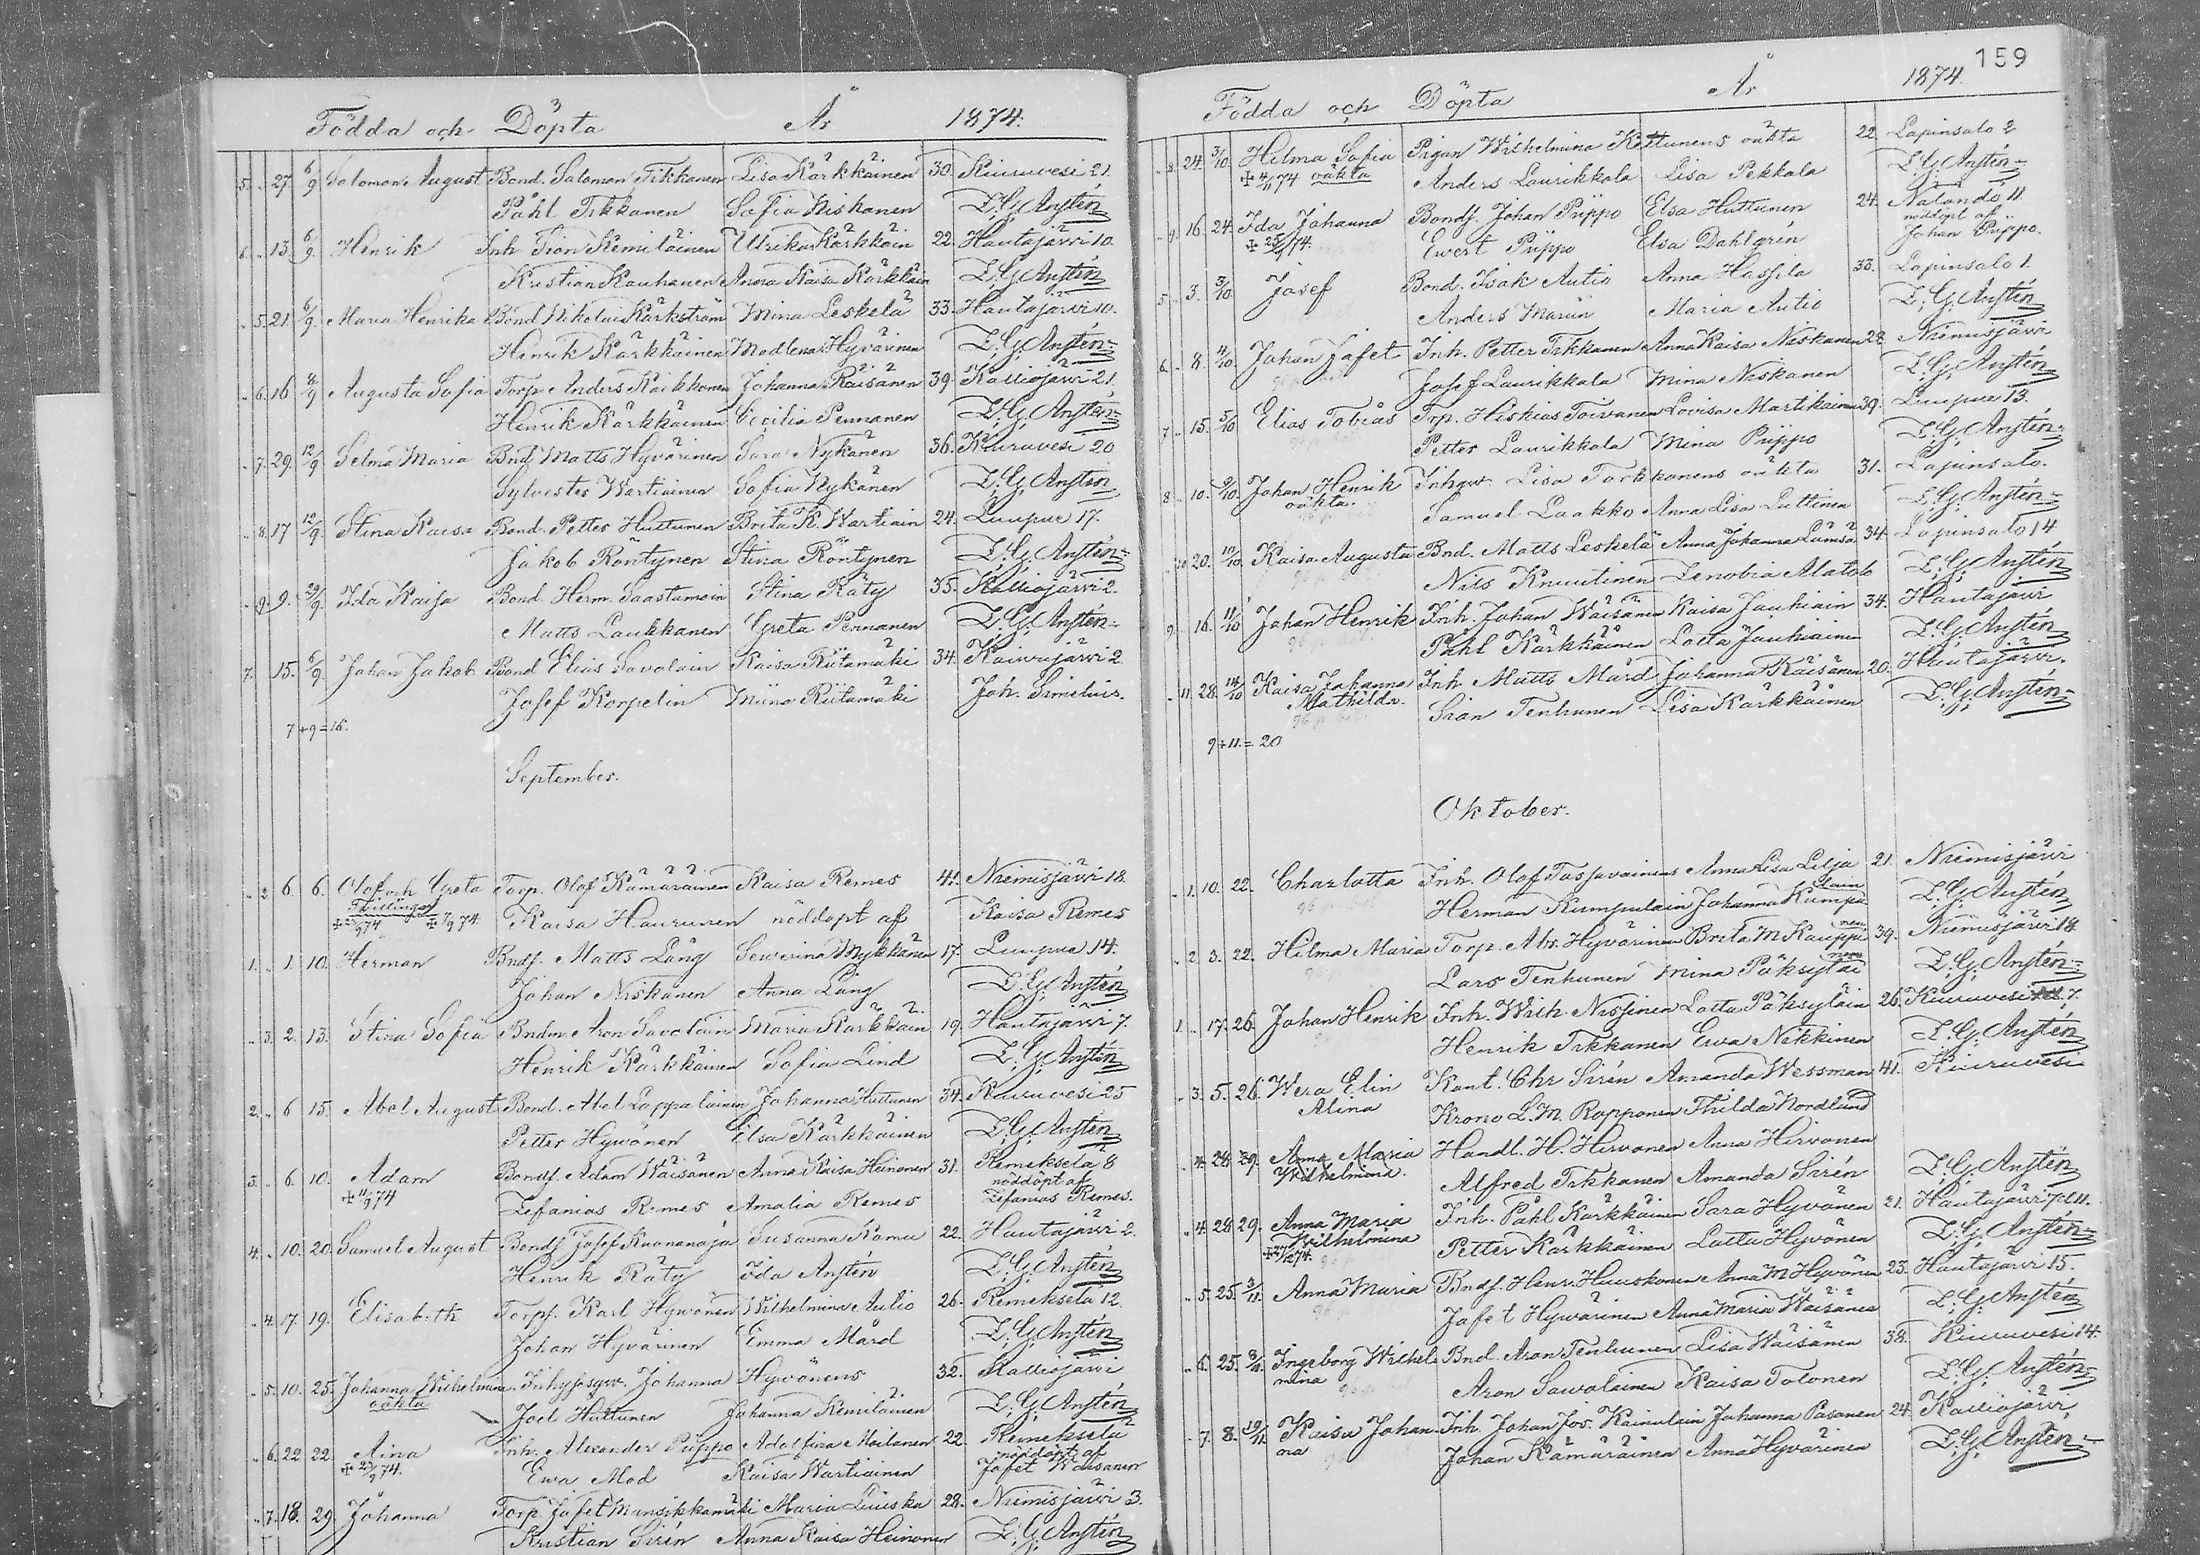 Födda och Döpta År 1874.
5. 27. 6/9 Salomon August Bond. Salomon Tikkanen Lisa Kärkkäinen 30. Kiuruvesi 21.
Påhl Tikkanen Sofia Niskanen L. G. Anstén
6. 13. 6/9. Henrik Inh. Sion Kemiläinen Ulrika Kärkkäin 22. Hautajärvi 10.
Kristian Kauhanen Anna Kaisa Kärkkäin L. G. Anstén
5. 21. 6/9. Maria Henrika Bond Nikolai Kärkström Mina Leskelä 33. Hautajärvi 10.
Henrik Kärkkäinen Madlena Hyvärinen L. G. Anstén
6. 16. Augusta Sofia Torp. Anders Kaikkonen Johanna Räisänen 39. Kalliojärvi 21.
Henrik Kärkkäinen Cecilia Pennanen L. G. Anstén
7. 29. 12/9. Selma Maria Bnd. Matts Hyvärinen Sara Nykänen 36. Kiuruvesi 20
Sylvester Wartiainen Sofia Nykänen L. G. Anstén
8. 17 12/9. Stina Kaisa Bond. Petter Huttunen Brita K. Wartiain 24. Luupue 17.
Jakob Röntynen Stina Röntynen L. G. Anstén
9. 9. 29/9. Ida Kaisa Bond. Herm. Saastamoin Stina Räty 35. Kalliojärvi 2.
Matts Laukkanen Greta Pennanen L. G. Anstén
7. 15. 6/9. Johan Jakob Bond Elias Savolain Kaisa Riitamäki 34. Kaivujärvi 2
Josef Korpelin Miina Riitamäki Joh. Simelius.
7 + 9 = 16.
September.
2 6. 6. Olof och Greta Torp. Olof Kämäräinen Kaisa Remes 41. Niemisjärvi 18.
Tvillingar
Kaisa Haurunen nöddöpt af Kaisa Remes
1. 1. 10. Herman Bndf. Matts Lång Sewerina Mykkänen 17. Luupue 14.
Johan Niskanen Anna Lång L. G. Anstén
3. 2. 13. Stina Sofia Bndm Aron Savolain Maria Kärkkäin 19. Hautajärvi 7.
Henrik Kärkkäinen Sofia Lind L. G. Anstén
2. 6 15. Abel August Bond. Abel Lappalainen Johanna Huttunen 34. Kiuruvesi 25
Petter Hyvönen Elsa Kärkkäinen L. G. Anstén
3. 6. 10. Adam Bondf. Adam Wäisänen Anna Kaisa Heinonen 31. Remekselä 8
+ 11/9 74 nöddöpt af
Zefanias Remes Amalia Remes Zefanias Remes.
4. 10. 20. Samuel August Bondf Josef Susanna Rämä 22. Hautajärvi 2.
Henrik Räty Ida Anstén L. G. Anstén
4. 17. 19. Elisabeth Torpf. Karl Hyvönen Wilhelmina Autio 26. Remekselä 12.
Johan Hyvärinen Emma Mård L. G. Anstén
5. 10. 25. Johanna Wilhelmina Johanna Hyvönens 32. Kalliojärvi
oäkta Joel Huttunen Johanna Kemiläinen L. G. Anstén
6. 22 22 Aina Inh. Alexander Piippo Adolfina Moilanen 22. Remekselä
nöddöpt af
Ewa Mod Kaisa Wartiainen Jafet Wäisänen
7. 18. 29. Johanna Torp. Jafet Mansikkamäki Maria Luuska 28. Niemisjärvi 3.
Kristian Sirén Anna Kaisa Heinonen L. G. Anstén
159
Födda och Döpta År 1874.
8. 24. 3/10. Hilma Sofia Pigan Wilhelmina Kettunens oäkta 22. Lapinsalo 2
+ 4/11 74 oäkta Anders Laurikkala Lisa Pekkala L. G. Anstén
16. 24. Ida Johanna Bondf. Johan Piippo Elsa Huttunen 24. Näländö 11.
nöddöpt af
Ewert Piippo Elsa Dahlgrén Johan Piippo.
5. 3. 3/10 Josef Bond. Isak Autio Anna Hassila 33. Lapinsalo 1.
Anders Mariin Maria Autio L. G. Anstén
6. 8. 4/10. Johan Jafet Inh. Petter Tikkanen Anna Kaisa Niskanen 28. Niemisjärvi
Josef Laurikkala Mina Niskanen L. G. Anstén
7. 15. 5/10 Elias Tobias Trp. Hiskias Toivanen Lovisa Martikainen 39. Luupue 13.
Petter Laurikkala Mina Piippo L. G. Anstén
8. 10. 9/10. Johan Henrik Inhqv. Lisa Torkkonens oäkta 31. Lapinsalo.
oäkta. Samuel Laakko Anna Lisa Luttinen L. G. Anstén
10 20. 10/10. Kaisa Augusta Bnd. Matts Leskelä Anna Johanna Lämsä 34. Lapinsalo 14
Nils Knuutinen Zenobia Matab L. G. Anstén
9. 16. 11/10 Johan Henrik Inh. Johan Wäisänen Kaisa Jauhiain 34. Hautajärvi
Påhl Kärkkäinen Lotta Jauhiainen L. G. Anstén
11. 28. 14/10 Kaisa Johanna Inh. Matts Mård Johanna Räisänen 20. Hautajärvi.
Mathilda. Sian Tenhunen Lisa Kärkkäinen L. G. Anstén
9 + 11. = 20
Oktober.
1. 10. 22. Charlotta Inh. Olof Tossavainens Anna Lisa Lilja 21. Niemisjärvi
Herman Kumpulain Johanna Kumpulain L. G. Anstén
2. 3. 22. Hilma Maria Torp. Abr. Hyvärinen Brita M Kauppinen 39. Niemisjärvi 18.
Lars Tenhunen Mina Päksyläinen L. G. Anstén
1. 17. 26. Johan Henrik Inh. Wilh. Nissinen Lotta Päksyläin 26. Kiuruvesi 7.
Henrik Tikkanen Ewa Nikkinen L. G. Anstén
3. 5. 26. Wera Elin Kant. Chr Sirén Amanda Wessman 41. Kiuruvesi
Alina Krono L. M. Rapponen Thilda Nordlund
4. 28 29. Anna Maria Handl. H. Hirvonen Anna Hirvonen
Wilhelmina. Alfred Tikkanen Amanda Sirén L. G. Anstén
4. 28 29. Anna Maria Inh. Påhl Kärkkäinen Sara Hyvönen 21. Hautajärvi
Wilhelmina Petter Kärkkäinen Lotta Hyvönen L. G. Anstén
5. 25. 3/11. Anna Maria Bndf. Henr. Huuskonen Anna M Hyvönen 23. Hautajärvi 15.
Jafet Hyvärinen Anna Maria Wäisänen L. G. Anstén
6. 25. Ingeborg Wilhel- Bnd. Aron Tenhunen Lisa Wäisänen 38. Kiuruvesi 14.
mina Aron Sawolainen Kaisa Tolonen L. G. Anstén
7. 8. Kaisa Johan- Inh. Johan Jos. Kainulain Johanna Pasanen 24. Kalliojärvi
na Johan Kämäräinen Anna Hyvärinen L. G. Anstén